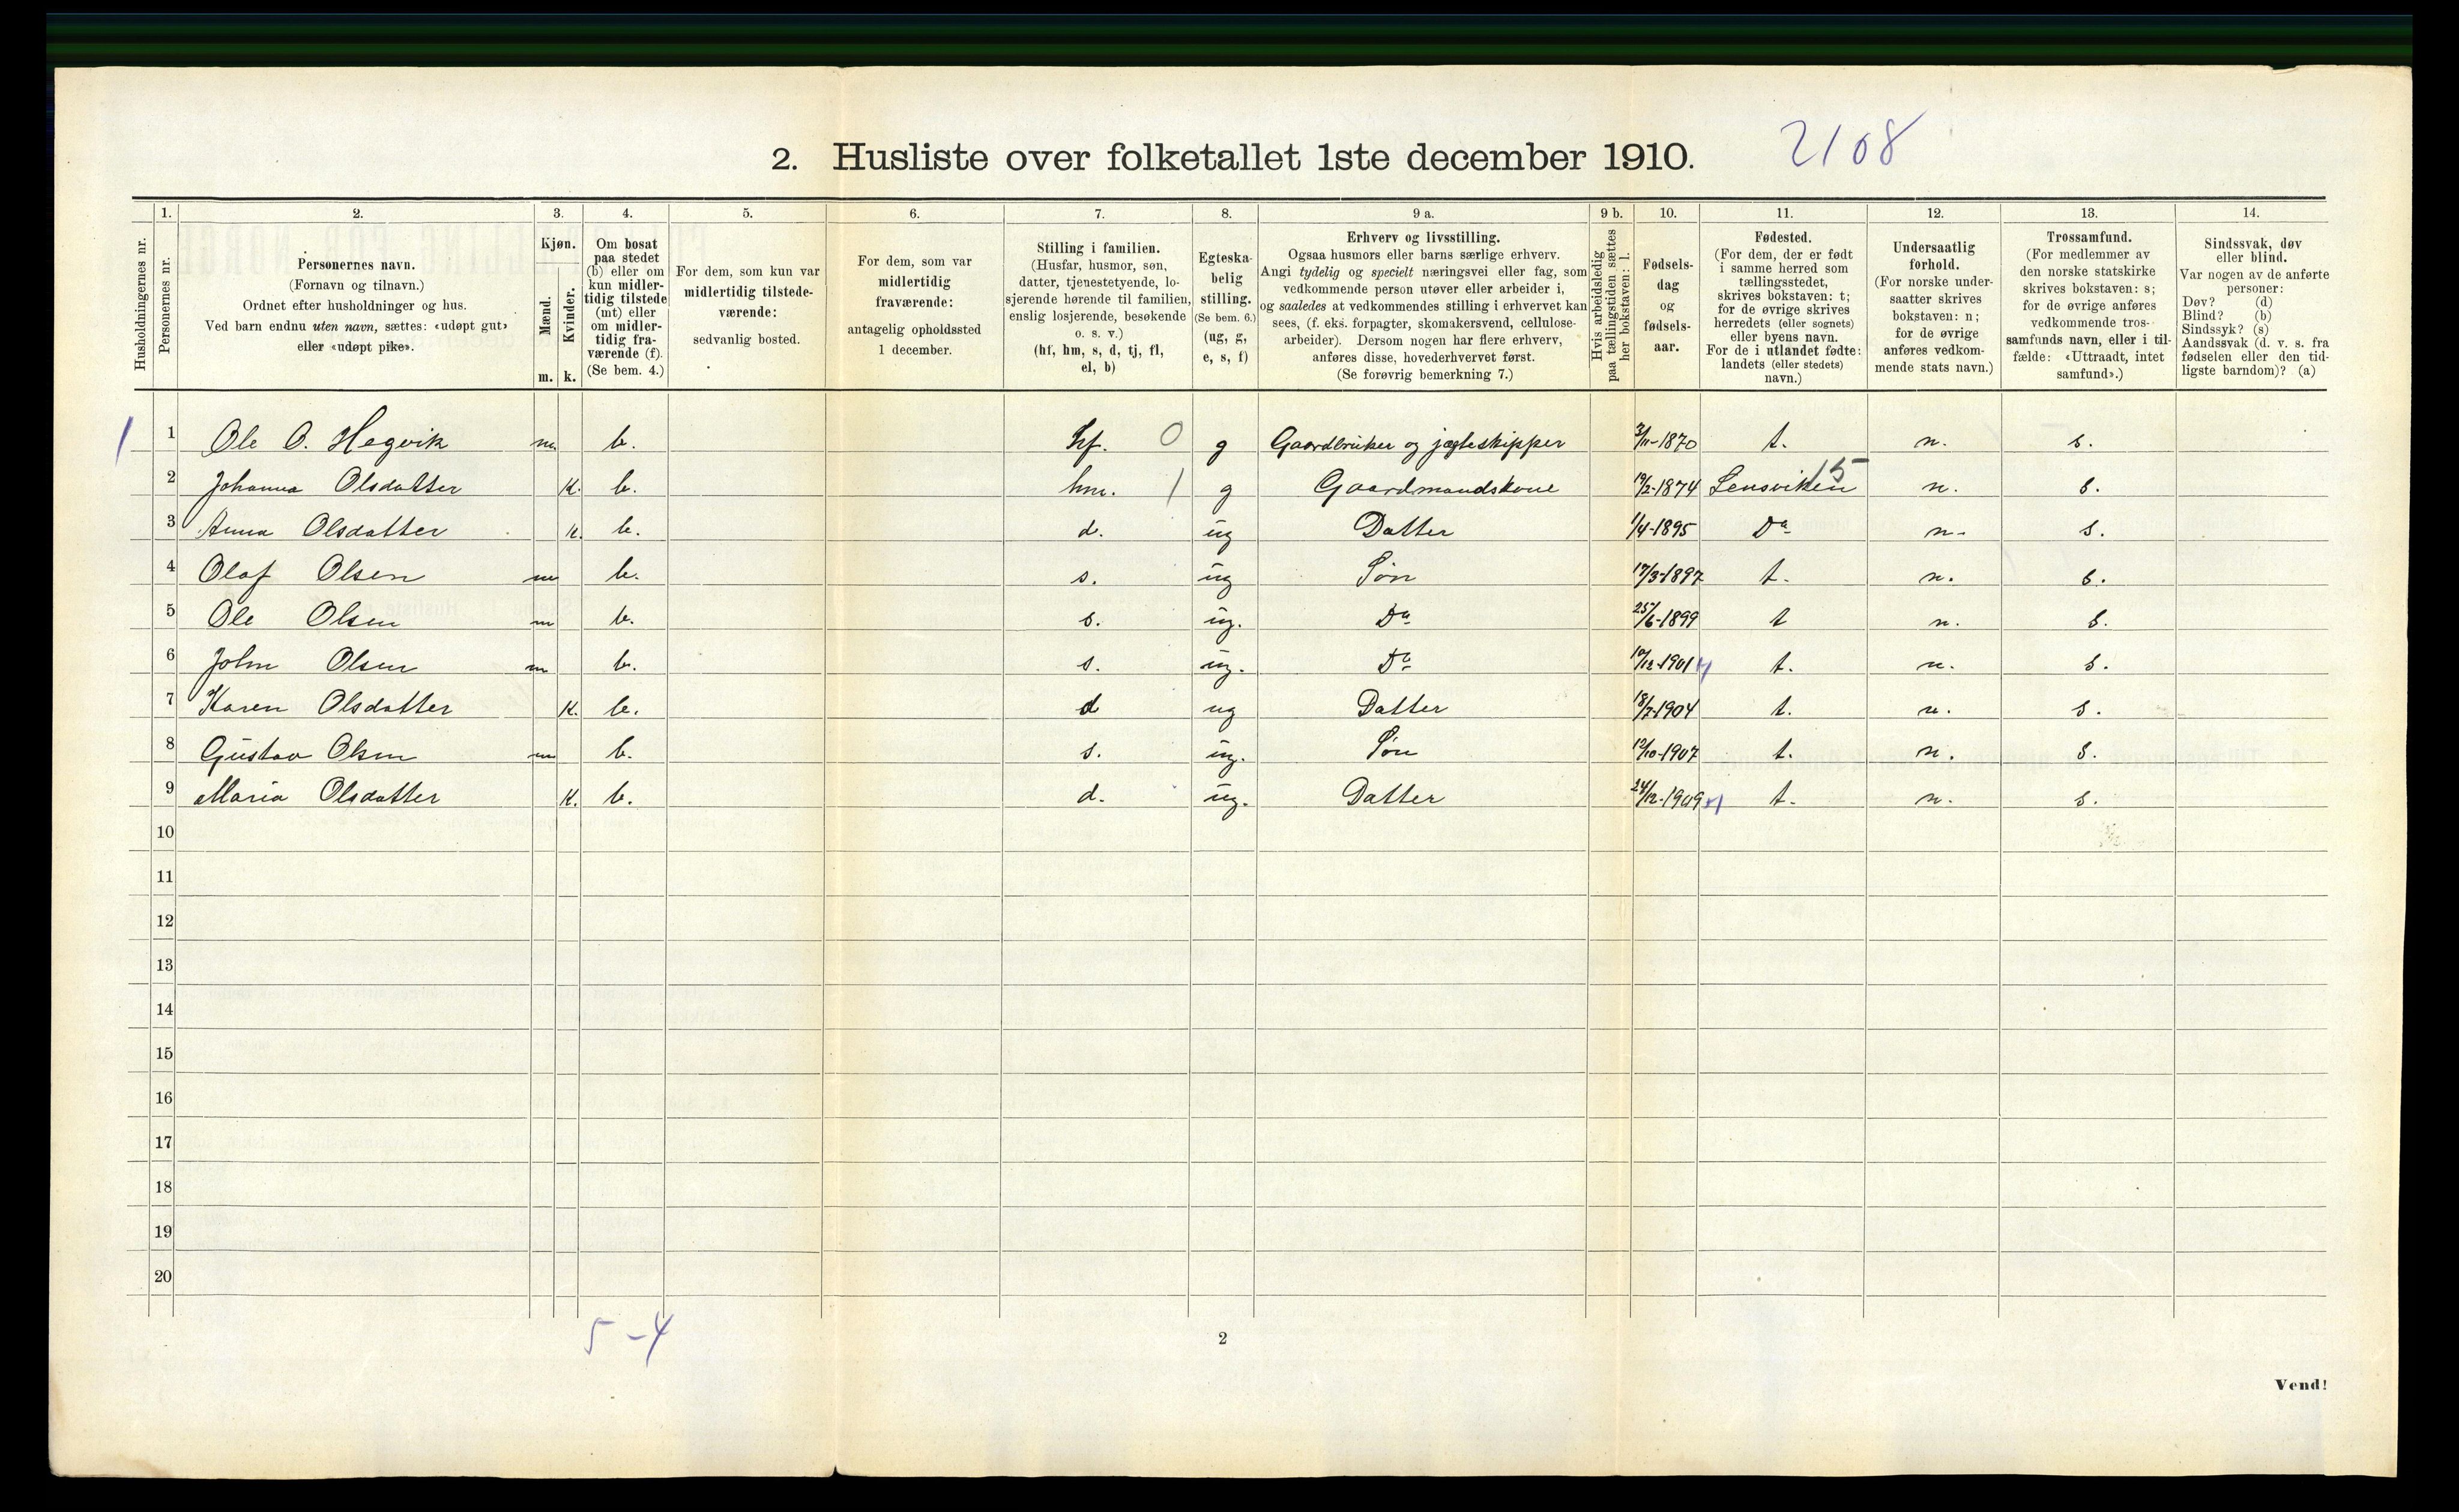 2. Husliste over folketallet 1ste december 1910. 2108
1. 2. 3. 4. 5. 6. 7. 8. 9 a. 9 b. 10. 11. 12. 13. 14.
Husholdningernes nr.
Personernes nr.
Personernes navn.
(Fornavn og tilnavn.)
Ordnet efter husholdninger og hus.
Ved barn endnu uten navn, sættes: «udøpt gut»
eller «udøpt pike».
Kjøn.
Mænd.
Kvinder.
m. k.
Om bosat
paa stedet
(b) eller om
kun midler-
tidig tilstede
(mt) eller
om midler-
tidig fra-
værende (f).
(Se bem. 4.)
For dem, som kun var
midlertidig tilstede-
værende:
sedvanlig bosted.
For dem, som var
midlertidig
fraværende:
antagelig opholdssted
1 december.
Stilling i familien.
(Husfar, husmor, søn,
datter, tjenestetyende, lo-
sjerende hørende til familien,
enslig losjerende, besøkende
o. s. v.)
(hf, hm, s, d, tj, fl,
el, b)
Egteska-
belig
stilling.
(Se bem. 6.)
(ug, g,
e, s, f)
Erhverv og livsstilling.
Ogsaa husmors eller barns særlige erhverv.
Angi tydelig og specielt næringsvei eller fag, som
vedkommende person utøver eller arbeider i,
og saaledes at vedkommendes stilling i erhvervet kan
sees, (f. eks. forpagter, skomakersvend, cellulose-
arbeider). Dersom nogen har flere erhverv,
anføres disse, hovederhvervet først.
(Se forøvrig bemerkning 7.)
Hvis arbeidsledig
paa tællingstiden sættes
her bokstaven: l.
Fødsels-
dag
og
fødsels-
aar.
Fødested.
(For dem, der er født
i samme herred som
tællingsstedet,
skrives bokstaven: t;
for de øvrige skrives
herredets (eller sognets)
eller byens navn.
For de i utlandet fødte:
landets (eller stedets)
navn.)
Undersaatlig
forhold.
(For norske under-
saatter skrives
bokstaven: n;
for de øvrige
anføres vedkom-
mende stats navn.)
Trossamfund.
(For medlemmer av
den norske statskirke
skrives bokstaven: s;
for de øvrige anføres
vedkommende tros-
samfunds navn, eller i til-
fælde: «Uttraadt, intet
samfund».)
Sindssvak, døv
eller blind.
Var nogen av de anførte
personer:
Døv? (d)
Blind? (b)
Sindssyk? (s)
Aandssvak (d. v. s. fra
fødselen eller den tid-
ligste barndom)? (a)
1 1 Ole O. Hegvik m. b. hf. 0 g Gaardbruker og jægteskipper 3/11-1870 t. n. s.
2 Johanna Olsdatter k. b. hm. 1 g Gaardmandskone 19/2-1874 Lensviken 15 n. s.
3 Anna Olsdatter k. b. d. ug Datter 1/4-1895 Do n. s.
4 Olaf Olsen m b. s. ug Søn 17/3-1897 t. n. s.
5 Ole Olsen m b. s. ug. Do 25/6-1899 t n. s.
6 John Olsen m b. s. ug. Do /12-1901 t. n. s.
7 Karen Olsdatter k. b. d ug Datter 18/7-1904 t. n. s.
8 Gustav Olsen m b. s. ug. Søn 12/10-1907 t. n. s.
9 Maria Olsdatter k. b. d. ug. Datter 24/12-1909 t. n. s.
10
11
12
13
14
15
16
17
18
19
20
5-4
2
Vend!